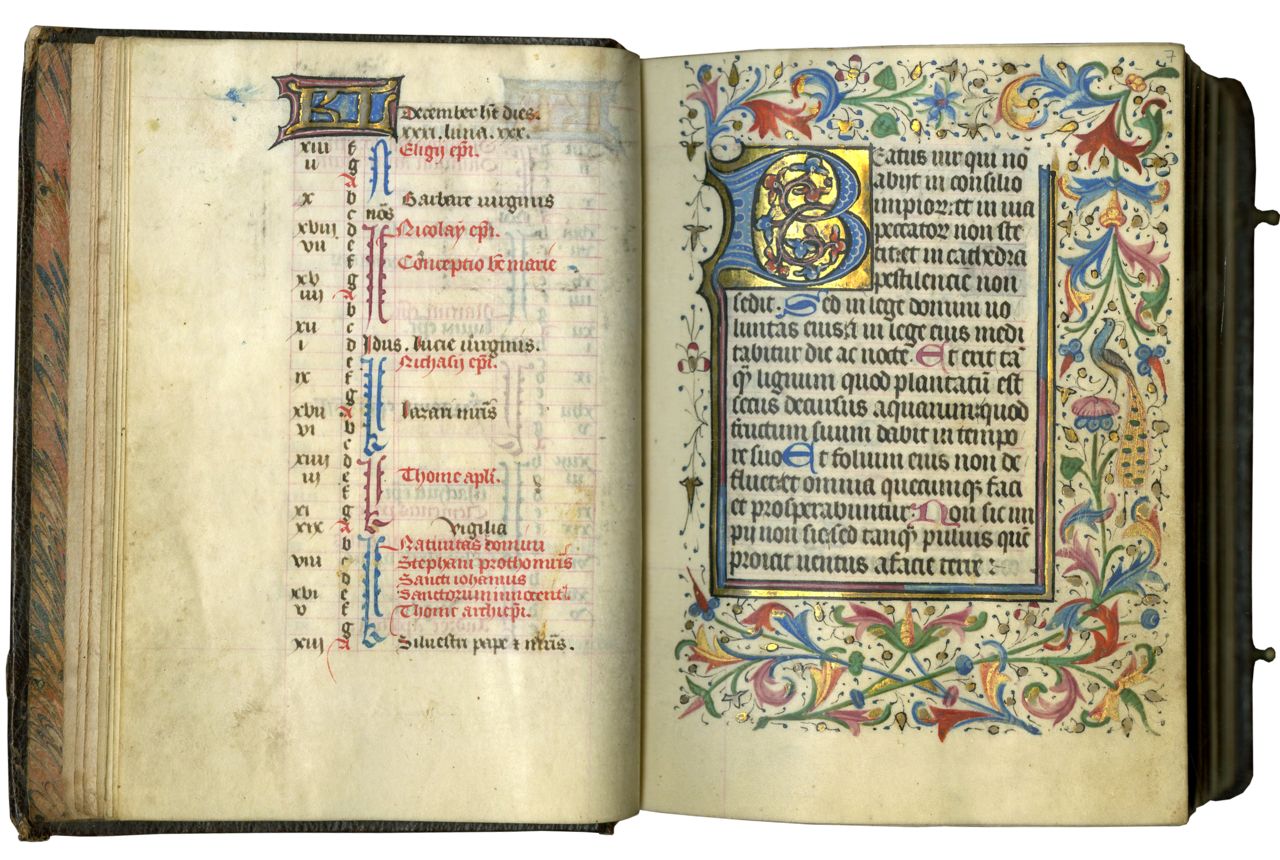 KL
December ht dies.
xxxi. luna. xxx.
xiii f Eligii epi.
ii g
A
x b Barbare virginis
c nos
xviii d Nicolay epi.
vii e
f Conceptio be marie
xv g
iiii A
b
xii c
i d Idus. lucie virginis.
e Nichasij epi.
ix f
g
xvii A lazari mris
vi b
c
xiiii d Thome apli.
iii e
f
xi g
xix A Vigilia
b Nativitas domini
viii c Stephani prothomris
d Sancti iohannis
xvi e Sanctorum innocent
v f Thome archiepi.
g
xiii A Silvestri pape & mris.
7
Beatus vir qui no
abijt in consilio
impior: et in via
peccator non ste
tit: et in cathedra
pestilencie non
sedit. Sed in lege domini vo
luntas eius: & in lege eius medi
tabitur die ac nocte. Et erit ta
q lignum quod plantatu est
secus decursus aquarum: quod
fructum suum dabit in tempo
re suo Et folium eius non de
fluet: et omnia quecumq faci
et prosperabuntur. Non sic im
pii non sic: sed tanq pulvis que
proicit ventus a facie terre :